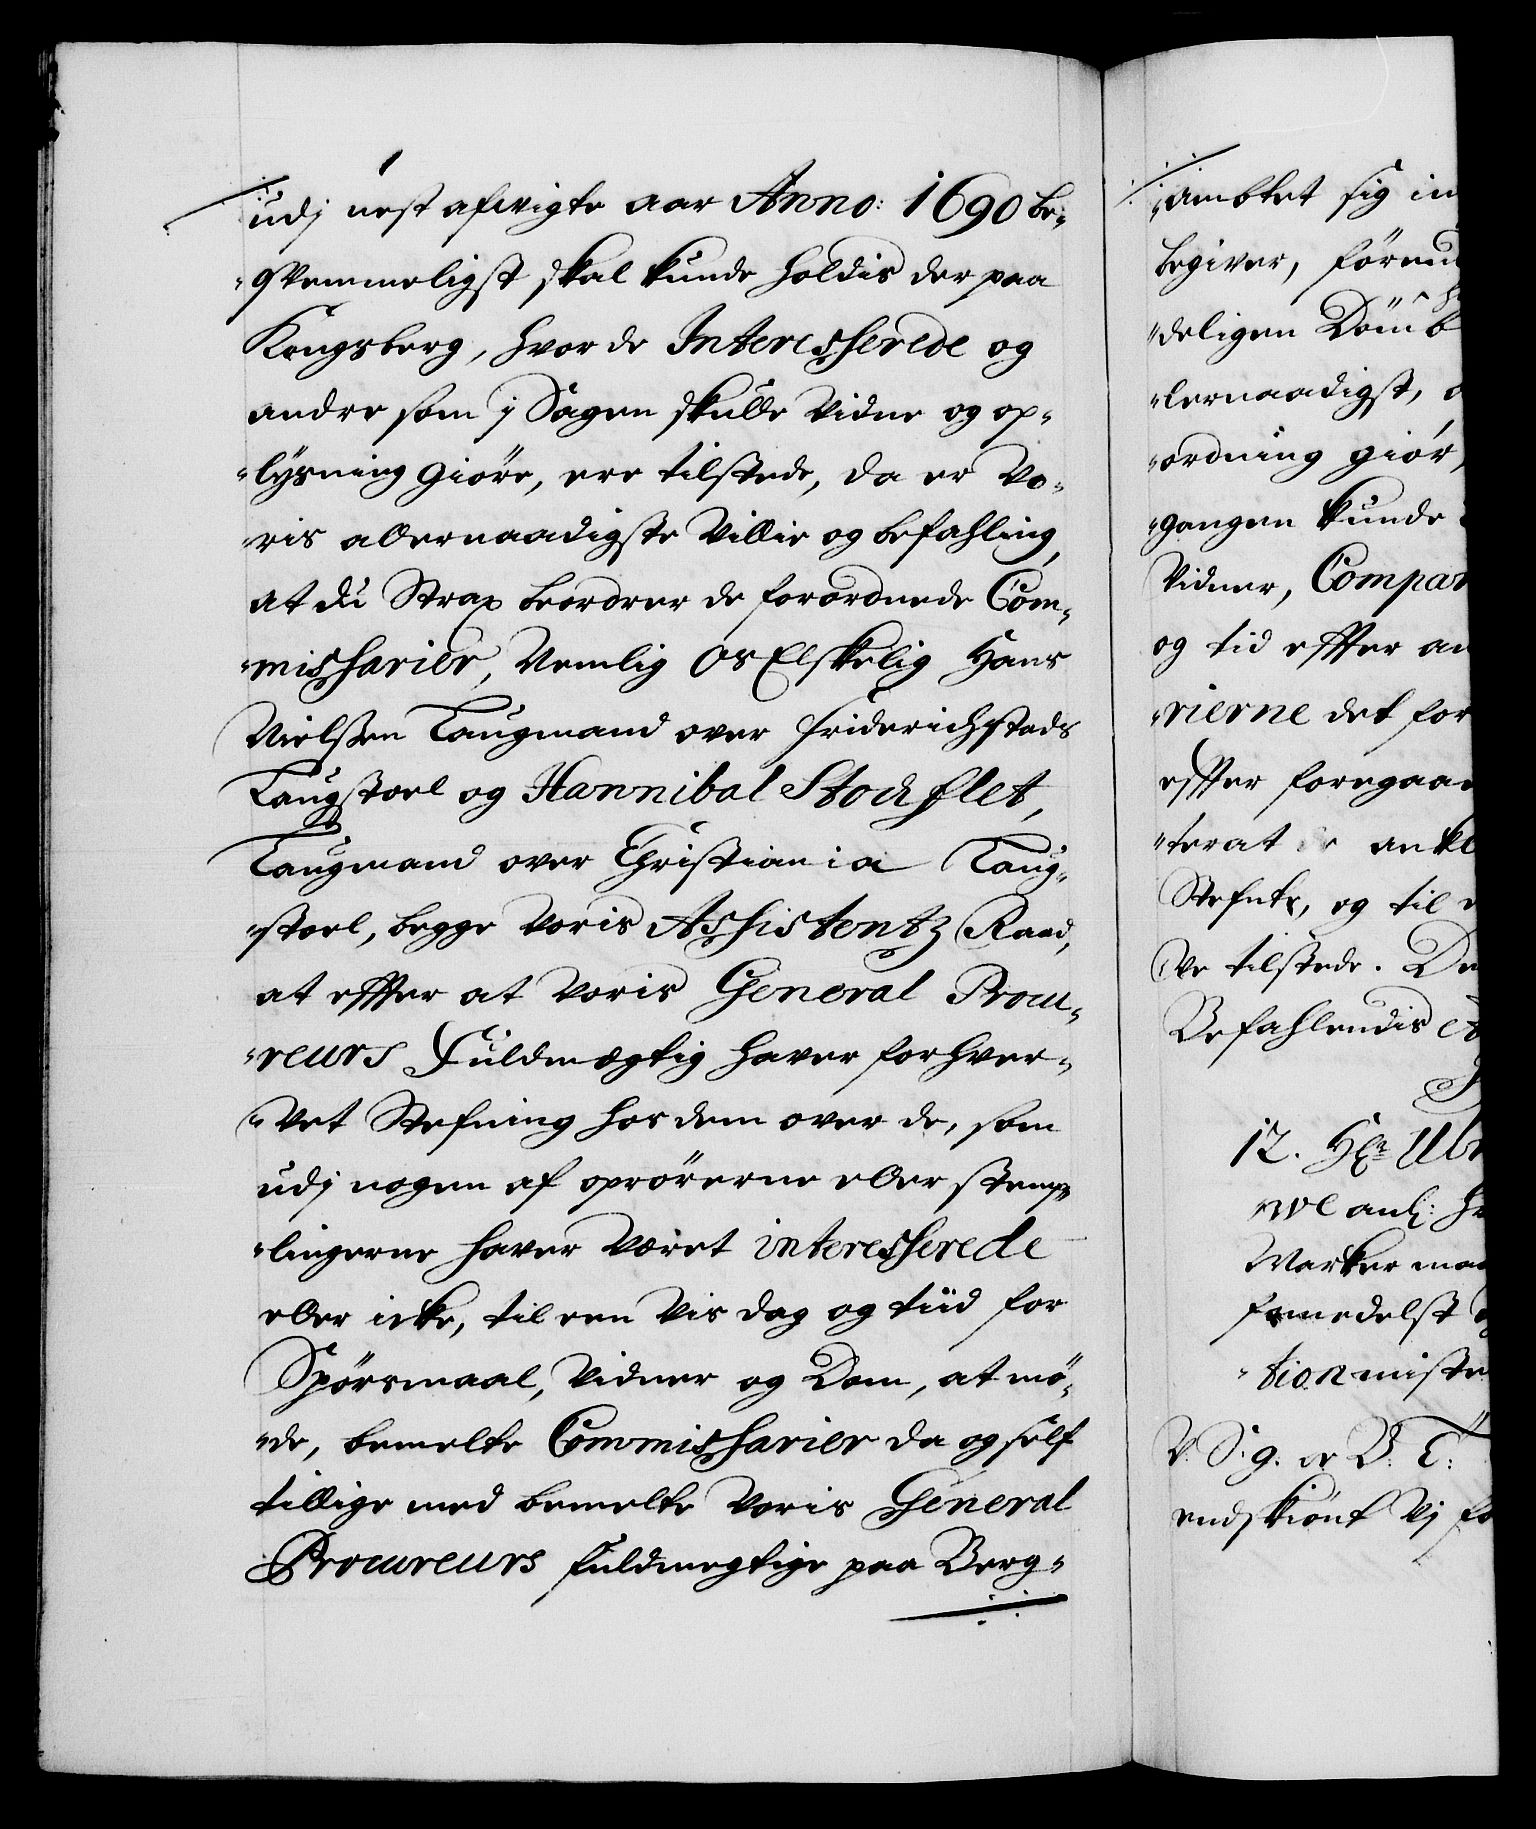 udj nest afvigte aar Anno: 1690 be-
-qvemmeligst skal kunde holdis der paa
Kongsberg, hvor de Interesserede og
andre som j Sagen skulle Vidne og op-
-lÿsning giöre, ere tilstede, da er Vo-
-ris allernaadigste Villie og befahling,
at du Strax beordrer de forordnede Com-
-missarier, Nemlig Os Elskelig Hans
Nielssen Laugmand over Friderichstads
Laugstoel og Hannibal Stockflet,
Laugmand over Christiania Laug-
-stoel, begge Voris Assistentz Raad,
at effter at Voris General Procu-
-reurs Fuldmægtig haver forhver-
-vet Stefning hos dem over de, som
udj nogen af oprörerne eller stemp-
-lingerne haver Været interesserede
eller icke, til een Vis dag og tiid for
Spörsmaal, Vidner og Dom, at mö-
-de, bemelte Commissarier da og self
tillige med bemelte Voris General
Procureurs fuldmegtige paa Berg-
-ambtet sig in
begiver, förend
-deligen Döm
-lernaadigst,
-ordning giör,
-gangen kunde
Vidner, Compar
og tid effter an
-rierne det for
effter foregaa
-terat er ankl
Stefnte, og til
Ve tilstede. De
Befahlendis
12. Hr Ulr
Marker ma
formedelst
-tion miste
V. S. g. or V. T:
endskiönt Vj fo